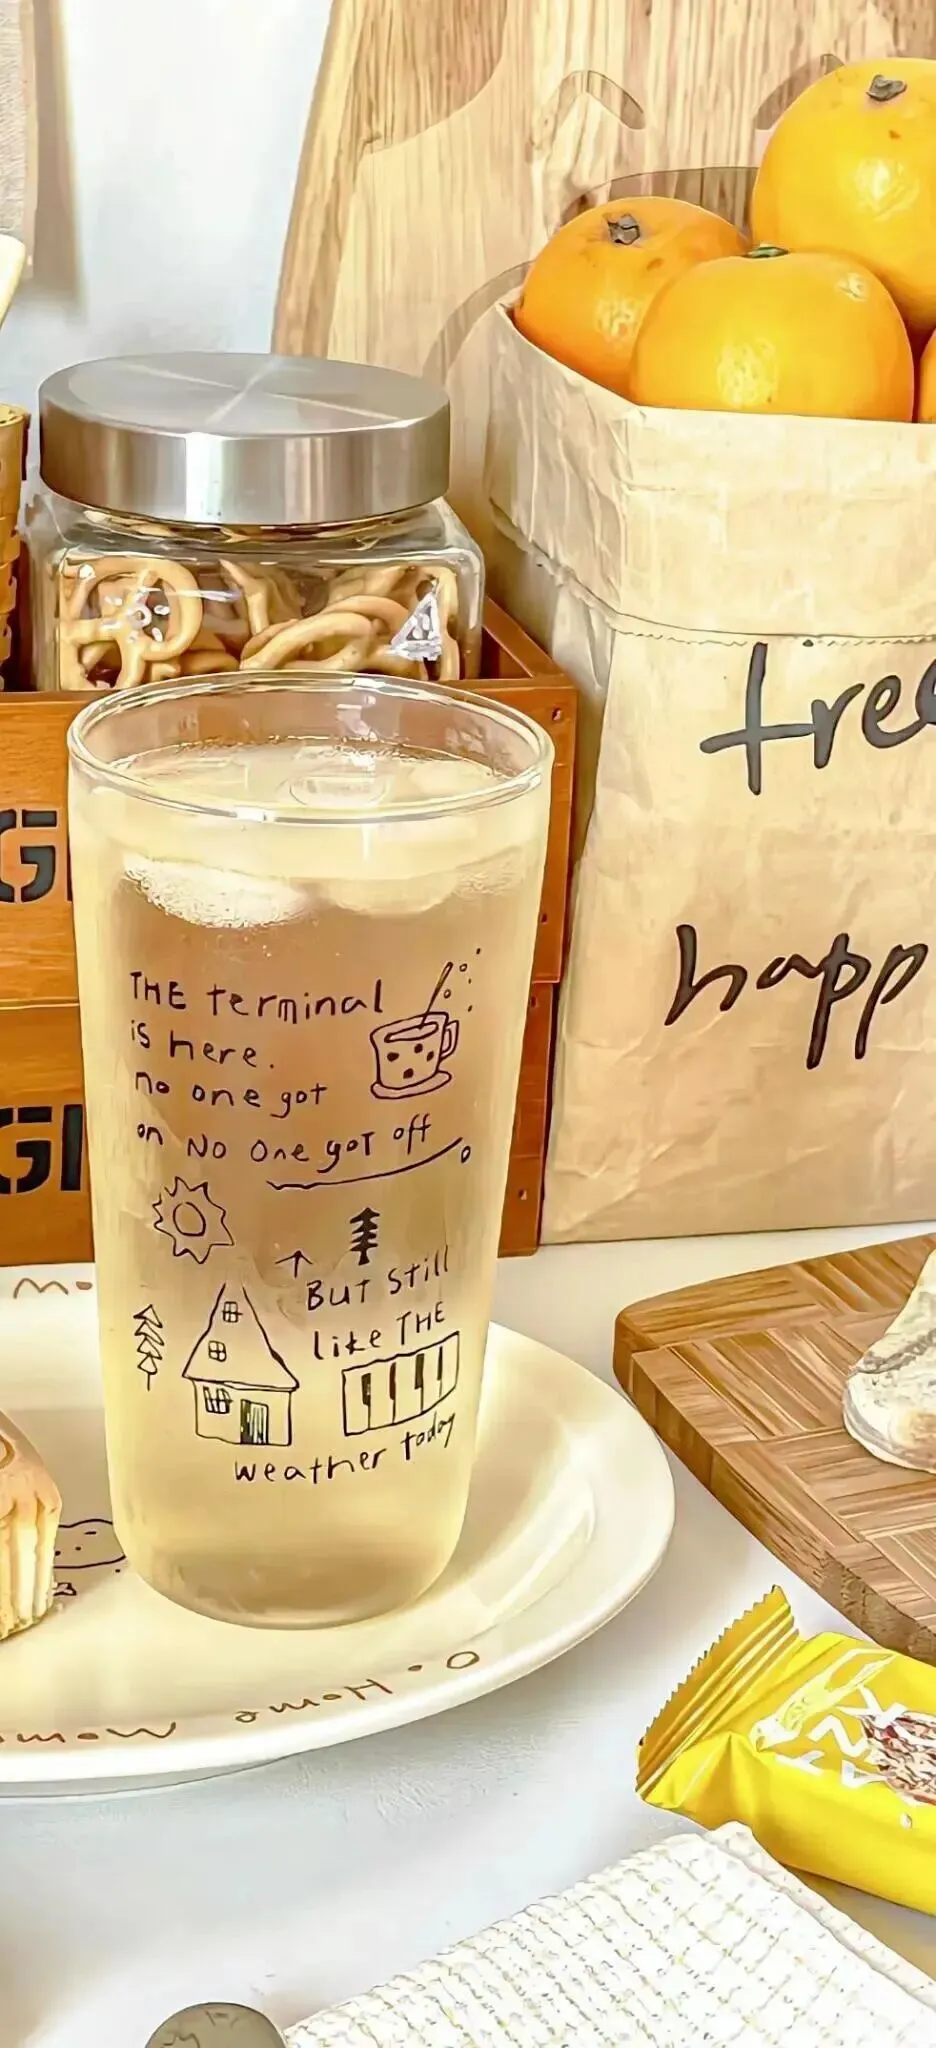 THE terminal
is here.
no one got
on No One got off
But still
like THE
weather today
tree
happ
GI
GI
O. Home
Mom